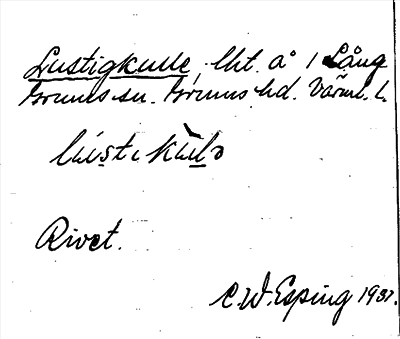 Lustigkulle, lht. å 1 Lång
Brunns sn. Brunns hd. Värml. l.
lùstikùlə
Rivet.
C.W. Esping 1931.